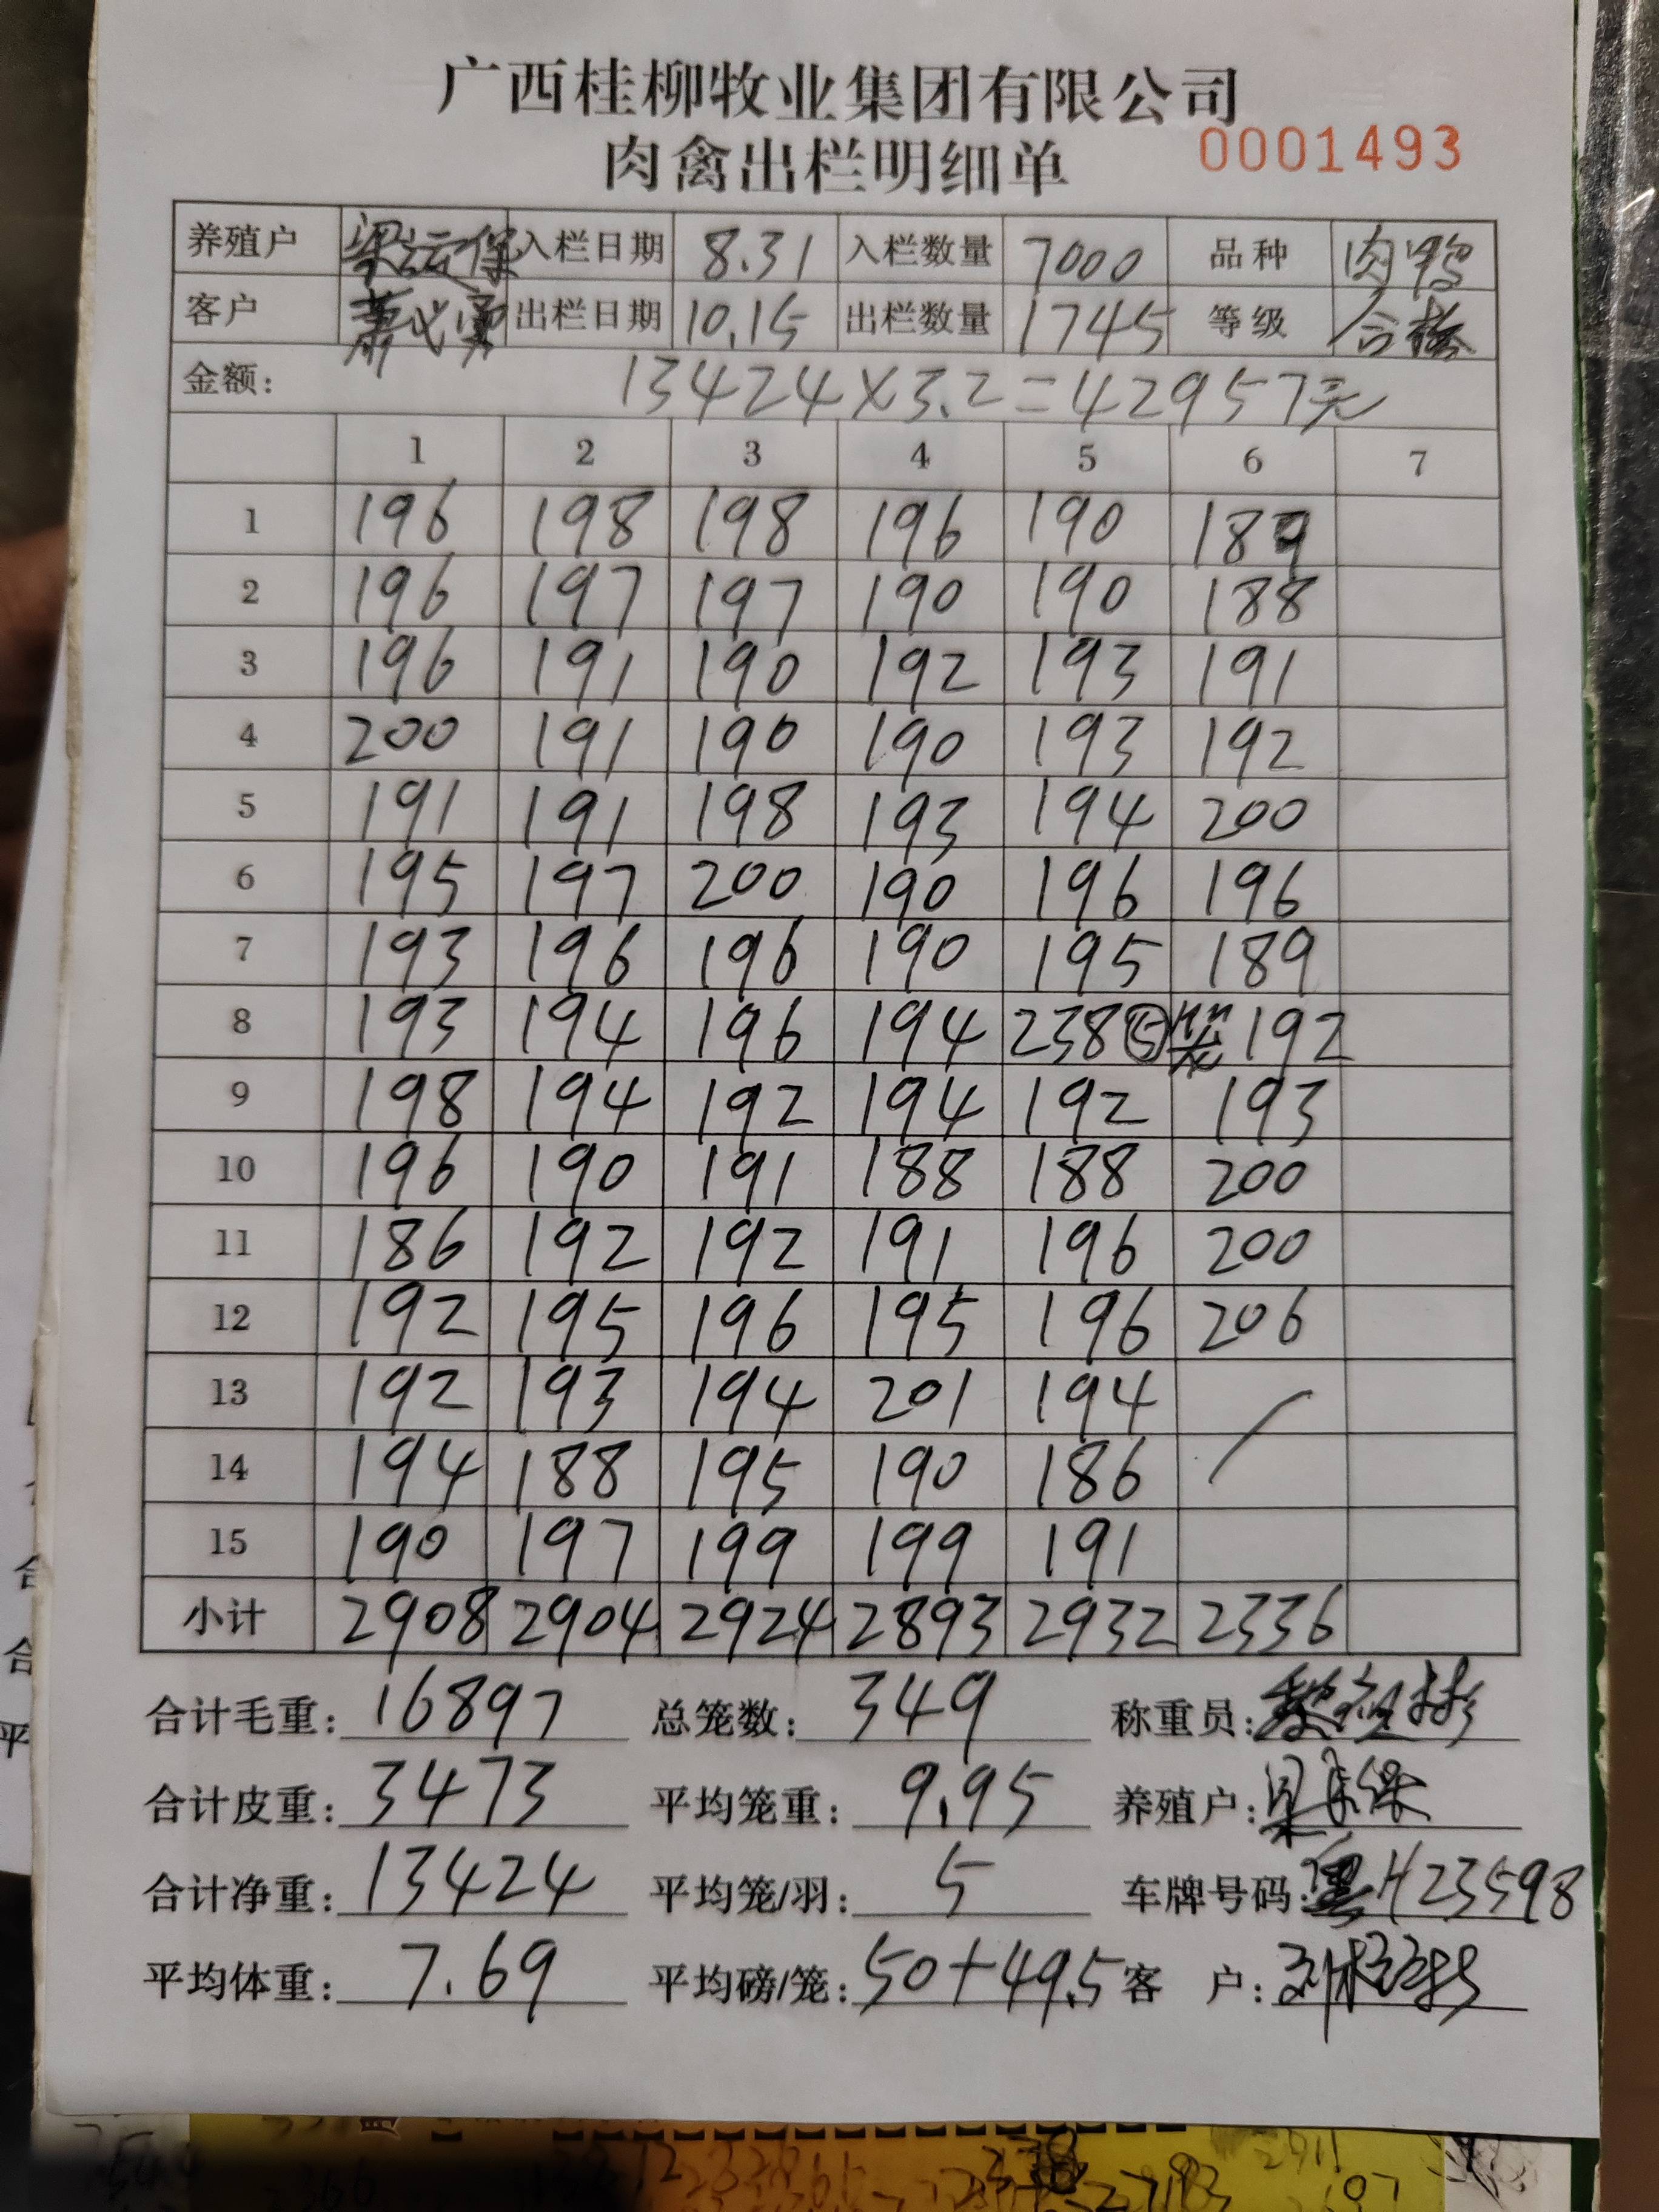 广西桂柳牧业集团有限公司
肉禽出栏明细单 0001493
养殖户 梁运保 入栏日期 8.31 入栏数量 7000 品种 肉鸭
客户 萧义勇 出栏日期 10.15 出栏数量 1745 等级 合格
金额: 13424×3.2=42957元
1 2 3 4 5 6 7
1 196 198 198 196 190 189
2 196 197 197 190 190 188
3 196 191 190 192 193 191
4 200 191 190 190 193 192
5 191 191 198 193 194 200
6 195 197 200 190 196 196
7 193 196 196 190 195 189
8 193 194 196 194 238⑤笼 192
9 198 194 192 194 192 193
10 196 190 191 188 188 200
11 186 192 192 191 196 200
12 192 195 196 195 196 206
13 192 193 194 201 194
14 194 188 195 190 186
15 190 197 199 199 191
小计 2908 2904 2924 2893 2932 2336
合计毛重: 16897 总笼数: 349 称重员:
合计皮重: 3473 平均笼重: 9.95 养殖户:
合计净重: 13424 平均笼/羽: 5 车牌号码: 粤H23598
平均体重: 7.69 平均磅/笼: 50+49.5 客 户: